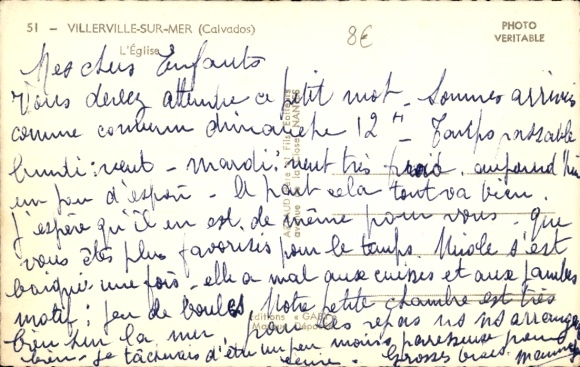 51 – VILLERVILLE-SUR-MER (Calvados)
L'Église
PHOTO
VERITABLE
8€
Mes chers Enfants
Vous devez attendre ce petit mot – Sommes arrivés
comme convenu dimanche 12 – Temps passable
lundi : vent – mardi : vent très froid, aujourd'hui
un peu d'espoir. A part cela tout va bien.
J'espère qu'il en est de même pour vous – que
vous êtes plus favorisés pour le temps. Nicole s'est
baignée une fois – elle a mal aux cuisses et aux jambes
motif : jeu de boules. Notre petite chambre est très
bien sur la mer, pour les repas ns ns arrangeons
bien – Je tâcherais d'être un peu moins paresseuse pour
écrire. Grosses bises.